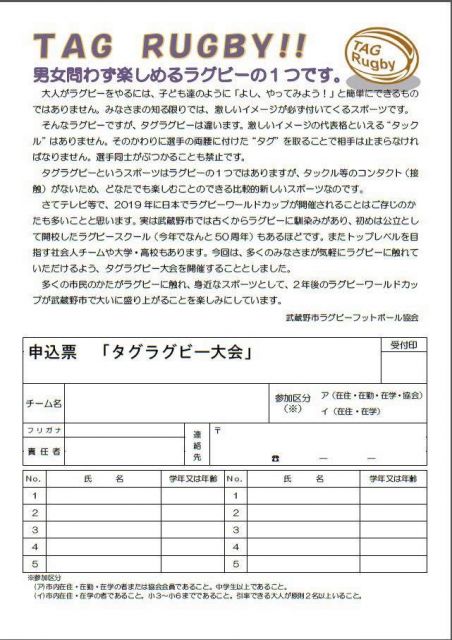 TAG RUGBY!!
TAG
Rugby
男女問わず楽しめるラグビーの1つです。
大人がラグビーをやるには、子ども達のように「よし、やってみよう！」と簡単にできるもの
ではありません。みなさまの知る限りでは、激しいイメージが必ず付いてくるスポーツです。
そんなラグビーですが、タグラグビーは違います。激しいイメージの代表格といえる“タック
ル”はありません。そのかわりに選手の両腰に付けた“タグ”を取ることで相手は止まらなけれ
ばなりません。選手同士がぶつかることも禁止です。
タグラグビーというスポーツはラグビーの1つではありますが、タックル等のコンタクト（接
触）がないため、どなたでも楽しむことのできる比較的新しいスポーツなのです。
さてテレビ等で、2019年に日本でラグビーワールドカップが開催されることはご存じのか
たも多いことと思います。実は武蔵野市では古くからラグビーに馴染みがあり、初めは公立とし
て開校したラグビースクール（今年でなんと50周年）もあるほどです。またトップレベルを目
指す社会人チームや大学・高校もあります。今回は、多くのみなさまが気軽にラグビーに触れて
いただけるよう、タグラグビー大会を開催することとしました。
多くの市民のかたがラグビーに触れ、身近なスポーツとして、2年後のラグビーワールドカッ
プが武蔵野市で大いに盛り上がることを楽しみにしています。
武蔵野市ラグビーフットボール協会
申込票 「タグラグビー大会」
受付印
チーム名
参加区分
（※）
ア（在住・在勤・在学・協会）
イ（在住・在学）
フリガナ
責任者
連絡先
〒
☎ ― ―
No. 氏 名 学年又は年齢 No. 氏 名 学年又は年齢
1 1
2 2
3 3
4 4
5 5
※参加区分
（ア）市内在住・在勤・在学の者または協会会員であること。中学生以上であること。
（イ）市内在住・在学の者であること。小3～小6までであること。引率できる大人が原則2名以上いること。